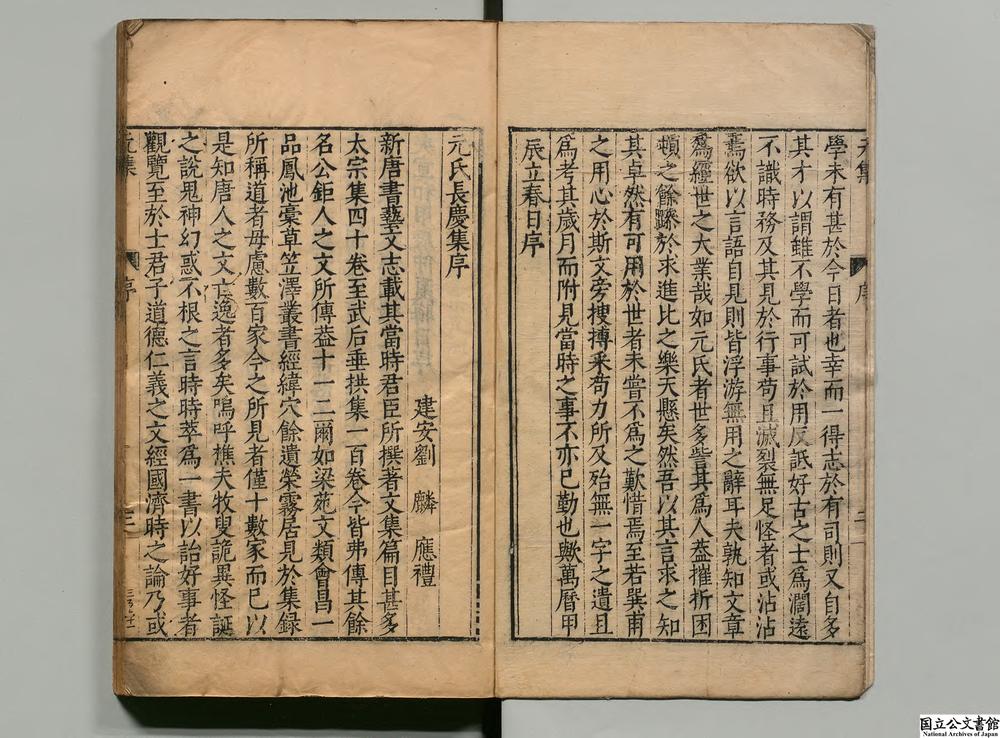 學未有甚於今日者也幸而一得志於有司則又自多
其才以謂雖不學而可試於用反詆好古之士爲濶遠
不識時務及其見於行事茍且滅裂無足怪者或沾沾
焉欲以言語自見則皆浮游無用之辭耳夫孰知文章
爲經世之大業哉如元氏者世多訾其爲人葢摧折困
頓之餘躁於求進比之樂天懸矣然吾以其言求之知
其卓然有可用於世者未嘗不爲之歎惜焉至若巽甫
之用心於斯文旁搜摶采茍力所及殆無一字之遺且
爲考其歲月而附見當時之事不亦已勤也歟萬曆甲
辰立春日序
元集
序
二
元氏長慶集序
建安劉 麟 應禮
新唐書藝文志載其當時君臣所撰著文集篇目甚多
太宗集四十卷至武后垂拱集一百卷今皆弗傳其餘
名公鉅人之文所傳葢十一二爾如梁苑文類會昌一
品鳳池稾草笠澤叢書經緯穴餘遺榮霧居見於集録
所稱道者毋慮數百家今之所見者僅十數家而已以
是知唐人之文亡逸者多矣嗚呼樵夫牧叟詭異怪誕
之說鬼神幻惑不根之言時時萃爲一書以詒好事者
觀覽至於士君子道德仁義之文經國濟時之論乃或
元集
序
三
国立公文書館
National Archives of Japan